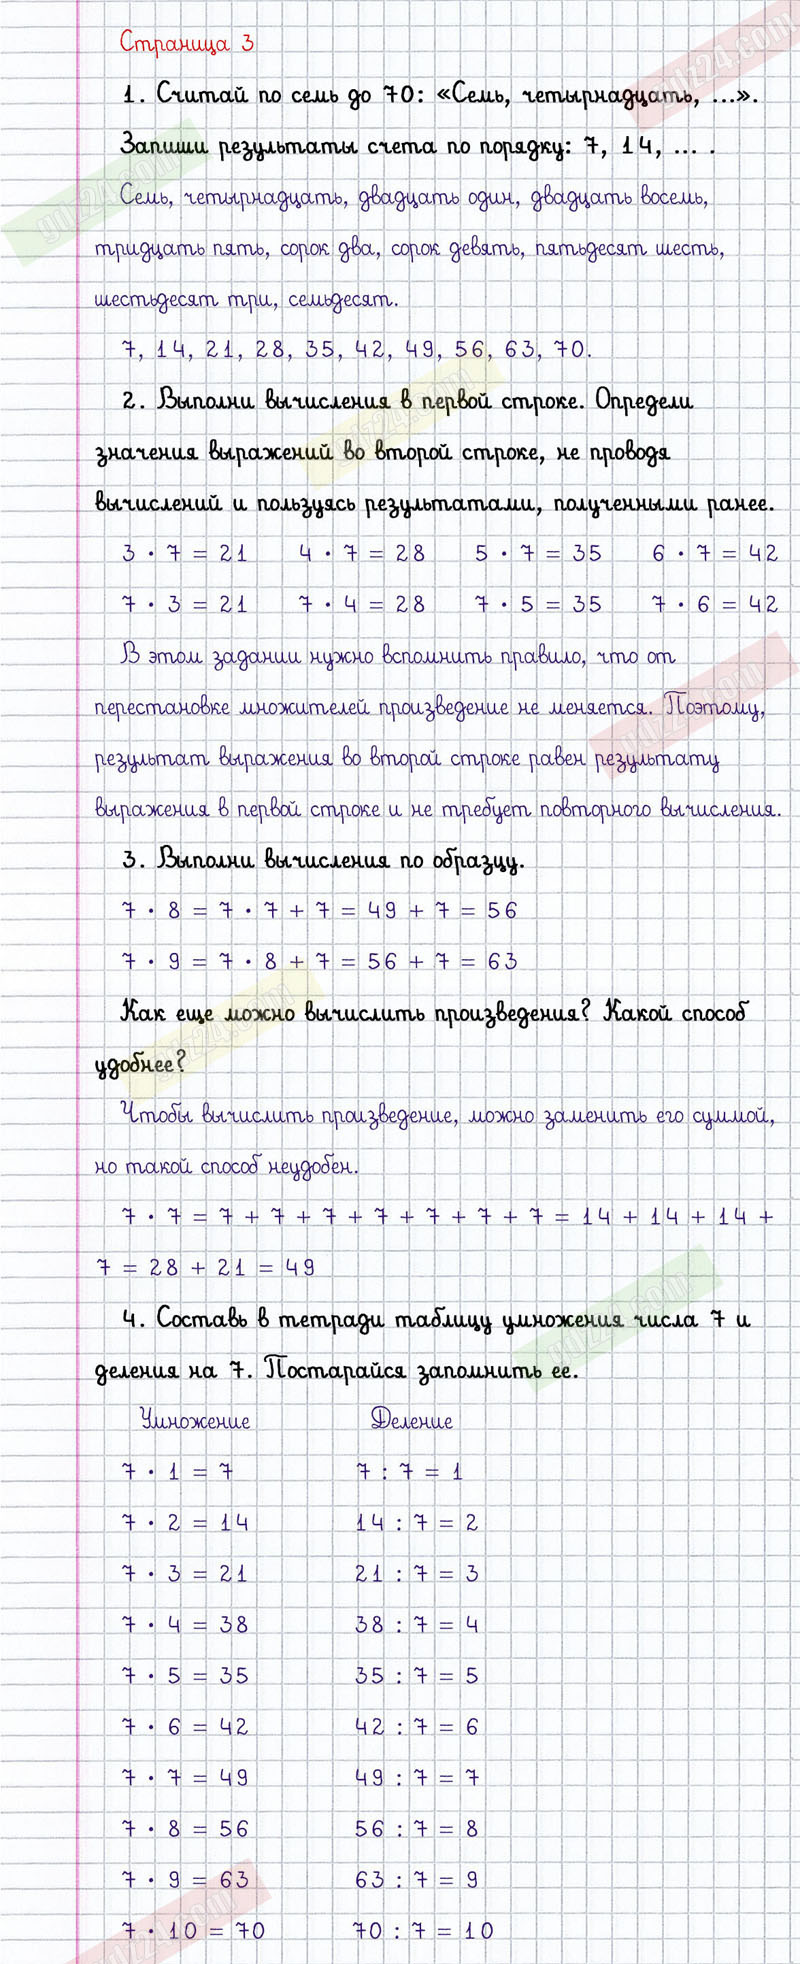 Страница 3
1. Считай по семь до 70: «Семь, четырнадцать, ...».
Запиши результаты счета по порядку: 7, 14, ... .
Семь, четырнадцать, двадцать один, двадцать восемь,
тридцать пять, сорок два, сорок девять, пятьдесят шесть,
шестьдесят три, семьдесят.
7, 14, 21, 28, 35, 42, 49, 56, 63, 70.
2. Выполни вычисления в первой строке. Определи
значения выражений во второй строке, не проводя
вычислений и пользуясь результатами, полученными ранее.
3 · 7 = 21 4 · 7 = 28 5 · 7 = 35 6 · 7 = 42
7 · 3 = 21 7 · 4 = 28 7 · 5 = 35 7 · 6 = 42
В этом задании нужно вспомнить правило, что от
перестановке множителей произведение не меняется. Поэтому,
результат выражения во второй строке равен результату
выражения в первой строке и не требует повторного вычисления.
3. Выполни вычисления по образцу.
7 · 8 = 7 · 7 + 7 = 49 + 7 = 56
7 · 9 = 7 · 8 + 7 = 56 + 7 = 63
Как еще можно вычислить произведения? Какой способ
удобнее?
Чтобы вычислить произведение, можно заменить его суммой,
но такой способ неудобен.
7 · 7 = 7 + 7 + 7 + 7 + 7 + 7 + 7 = 14 + 14 + 14 +
7 = 28 + 21 = 49
4. Составь в тетради таблицу умножения числа 7 и
деления на 7. Постарайся запомнить ее.
Умножение Деление
7 · 1 = 7 7 : 7 = 1
7 · 2 = 14 14 : 7 = 2
7 · 3 = 21 21 : 7 = 3
7 · 4 = 38 38 : 7 = 4
7 · 5 = 35 35 : 7 = 5
7 · 6 = 42 42 : 7 = 6
7 · 7 = 49 49 : 7 = 7
7 · 8 = 56 56 : 7 = 8
7 · 9 = 63 63 : 7 = 9
7 · 10 = 70 70 : 7 = 10
gdz24.com
gdz24.com
gdz24.com
gdz24.com
gdz24.com
gdz24.com
gdz24.com